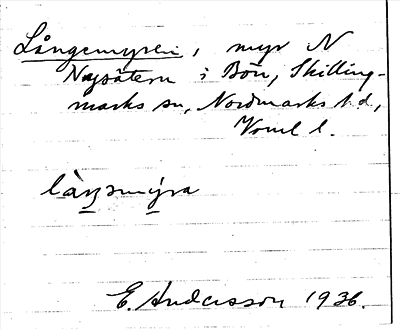 Långemyren, myr N
Nysätern i Bön, Skilling-
marks sn, Nordmarks hd,
Vrml l.
E. Andersson 1936.